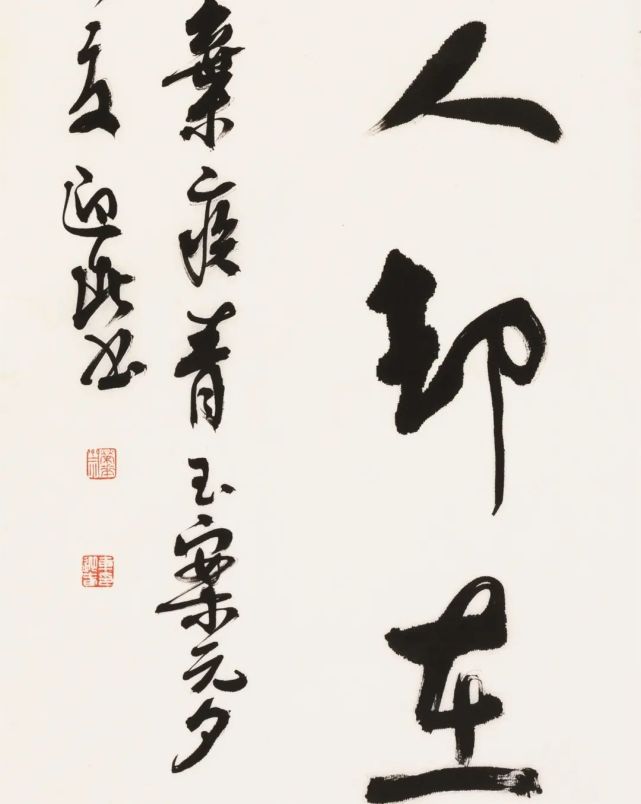 人却在
棄疾青玉案元夕
夏迎此书